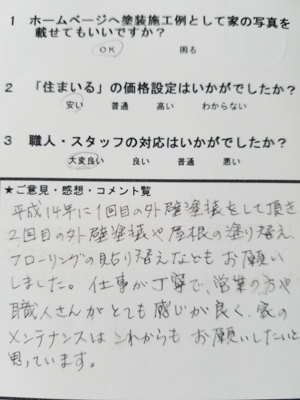 1 ホームページへ塗装施工例として家の写真を
載せてもいいですか？
OK 困る
2 「住まいる」の価格設定はいかがでしたか？
安い 普通 高い わからない
3 職人・スタッフの対応はいかがでしたか？
大変良い 良い 普通 悪い
★ご意見・感想・コメント覧
平成14年に1回目の外壁塗装をして頂き
2回目の外壁塗装や屋根の塗り替え、
フローリングの貼り替えなどもお願い
しました。仕事が丁寧で、営業の方や
職人さんがとても感じが良く、家の
メンテナンスはこれからもお願いしたいと
思っています。